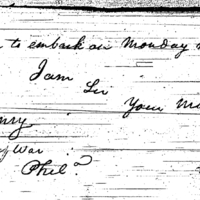 to embark on Monday
I am
Sir
Your
nry
War
Phila